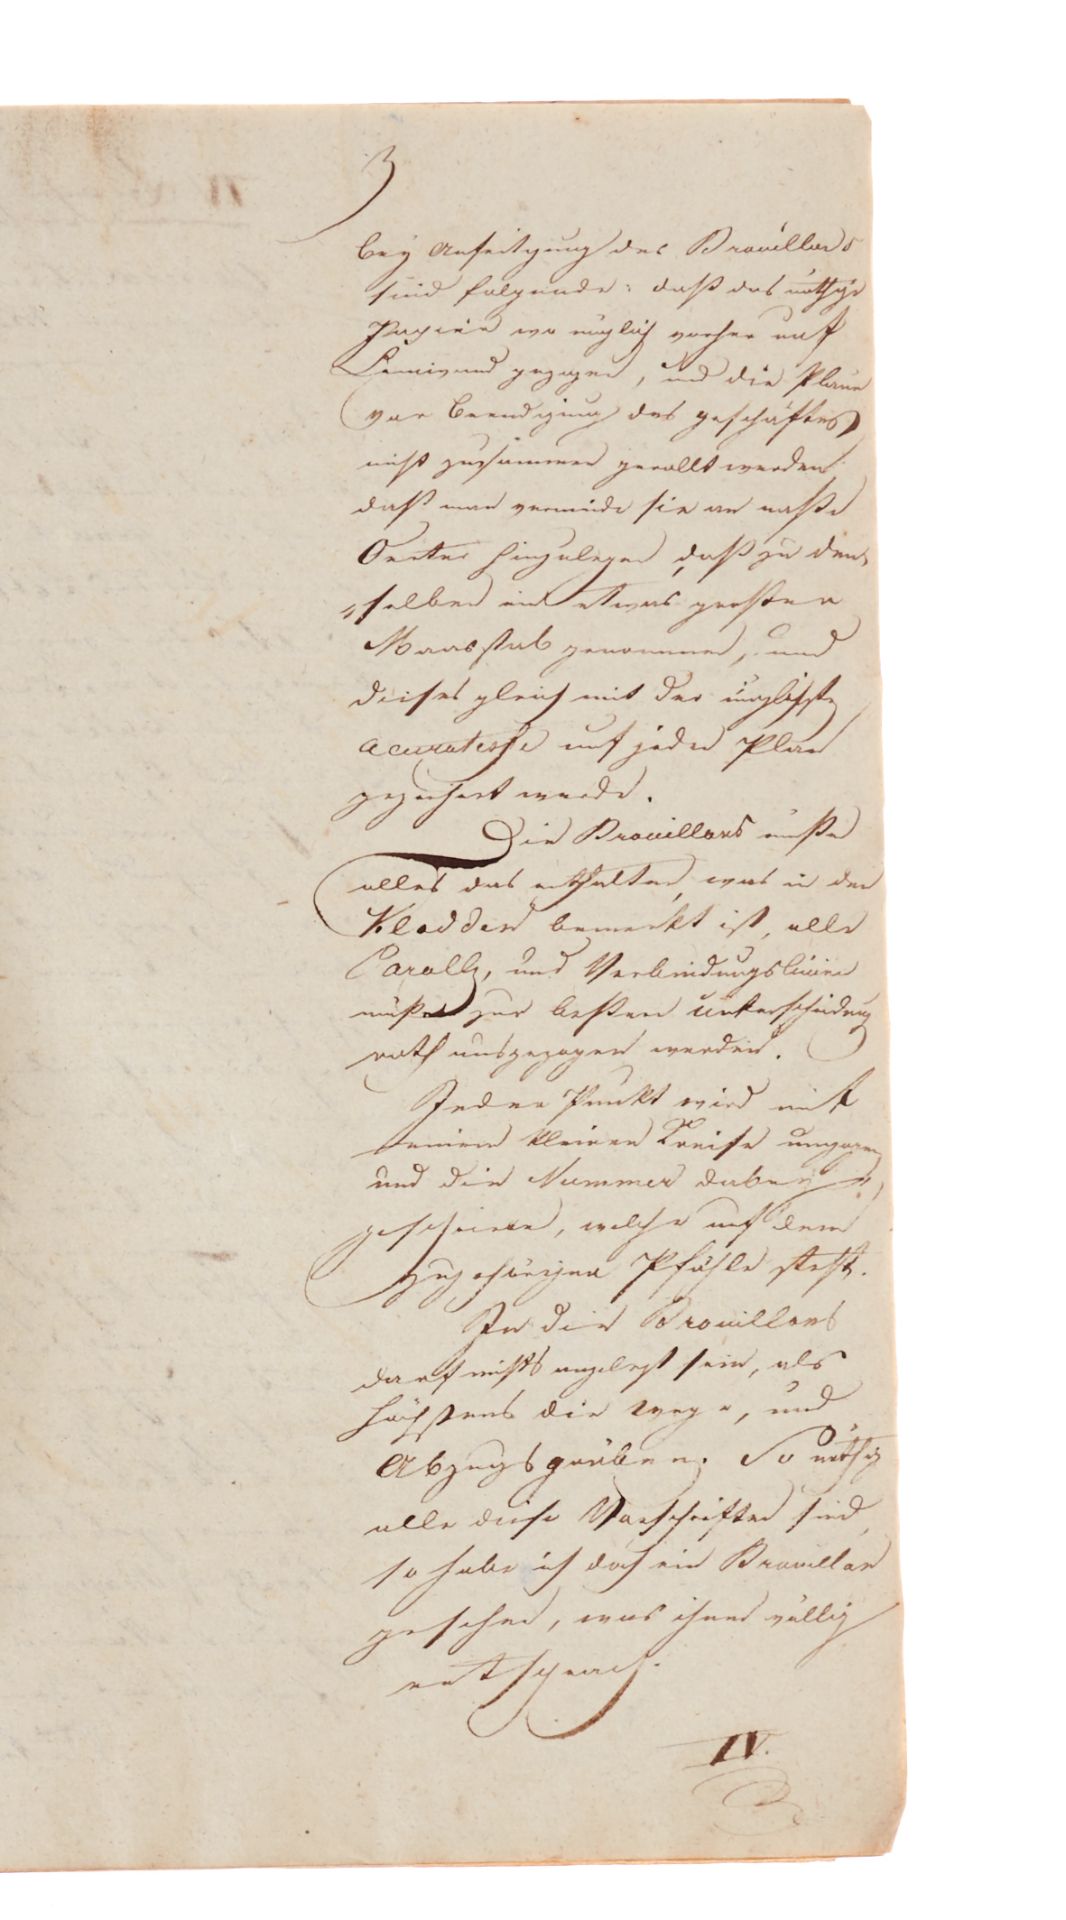 3
bey Anfertigung der Brouillons
sind folgende: daß das nöthige
Papier wo möglich vorher auf
Leinwand gezogen, und die Plane
vor Beendigung des geschäftes
nicht zusammen gerollt werden
daß man vermeide sie an naße
Oerter hinzulegen, daß zu den„
„selben ein etwas großer
Maasstab genommen, und
dieses gleich mit der möglichsten
acuratesse auf jeden Plan
gezeichnet werde.
Die Brouillons müße
alles das enthalten, was in den
Kladden bemerkt ist, alle
Parall, und Verbindungslinien
müßen zur beßern unterscheidung
roth ausgezogen werden.
Jeder Punkt wird mit
einem kleinen Kreise umzogen
und die Nummer dabey
geschrieben, welche auf dem
zugehörigen Pfahle steht.
In die Brouillons
darf nichts angelegt sein, als
höchstens die Wege, und
Abzugsgräben. So nöthig
alle diese Vorschriften sind,
so habe ich doch ein Brouillon
gesehen, was ihnen völlig
entsprach.
IV.